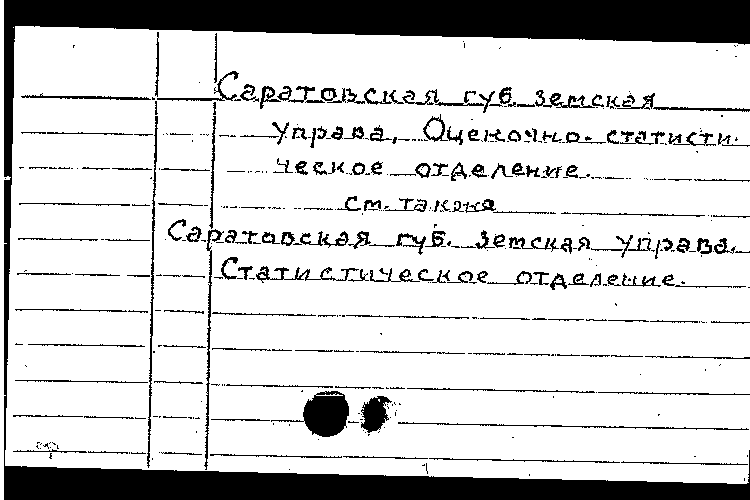 Саратовская губ. земская
управа, Оценочно-статисти-
ческое отделение.
см. также
Саратовская губ. земская управа.
Статистическое отделение.